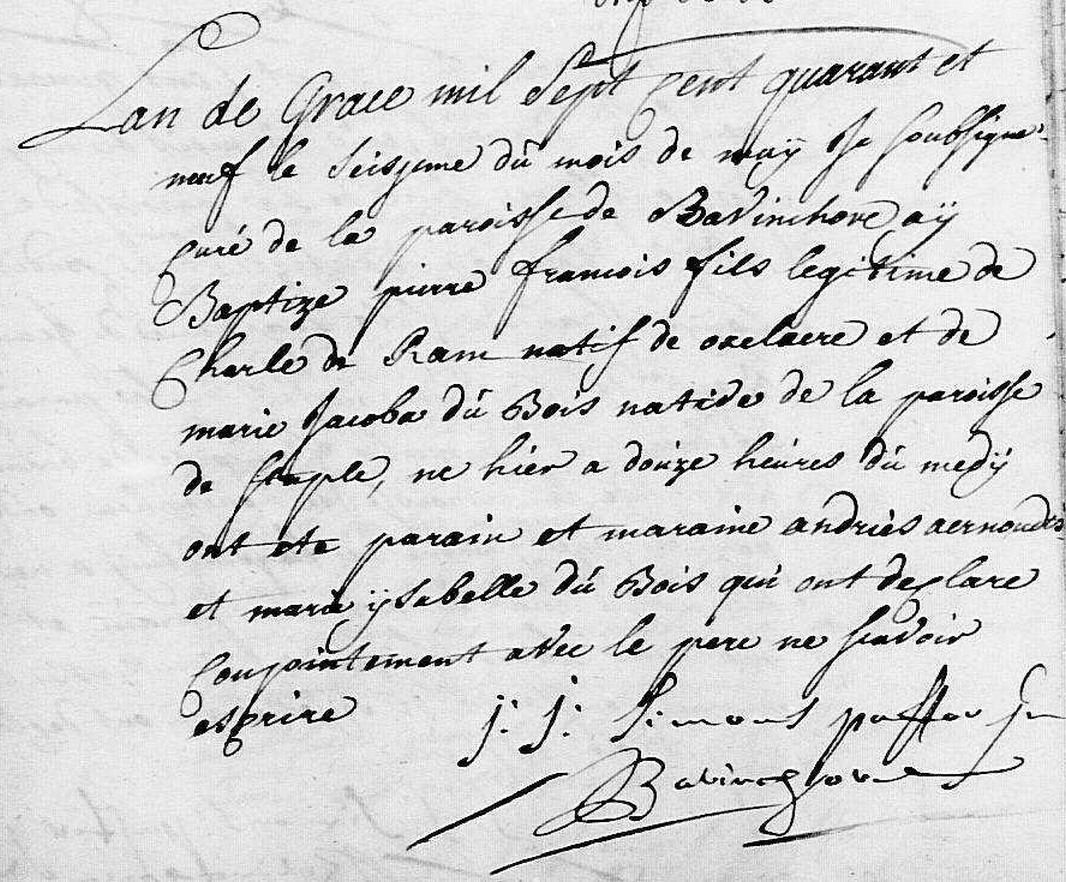 Lan de Grace mil Sept cent quarant et
neuf le seisjeme dû mois de maÿ Je soubsigne
curé de la paroisse de Bavinchove aÿ
Baptize pierre francois fils legitime de
Charle de Ram natif de oxelaere et de
marie Jacoba dû Bois native de la paroisse
de staple, ne hier a douze heures dû medÿ
ont ete parain et maraine andries aernouds
et marie ÿsabelle dû Bois qui ont declare
conjointement avec le pere ne scavoir
escrire j: j: Simons pastor in
Bavinchove